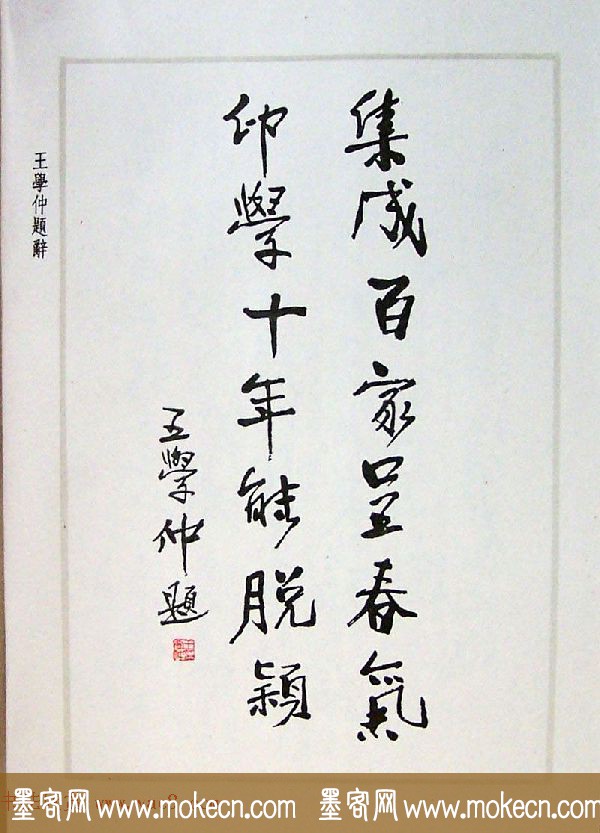 集成百家呈春氣
仰學十年能脱穎
王學仲題
王學仲題辭
墨客网 www.mokecn.com 墨客网 www.mokecn.com